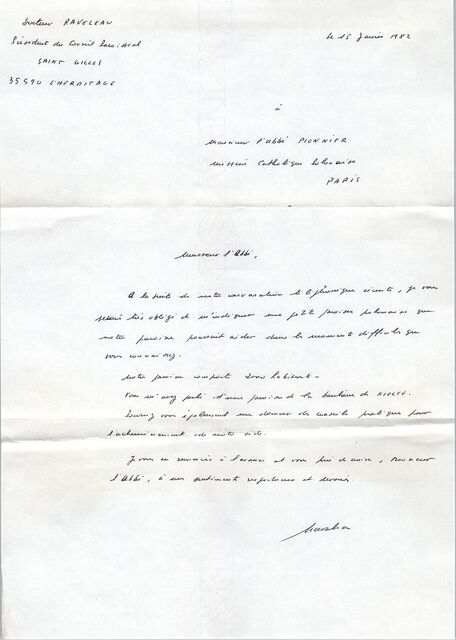 Docteur RAVELEAU
Le 15 Janvier 1982
Président du Conseil Paroissial
SAINT GILLES
35590 L'HERMITAGE
à
Monsieur l'abbé PIONNIER
Mission Catholique Polonaise
PARIS
Monsieur l'Abbé,
A la suite de notre conversation téléphonique récente, je vous
serais très obligé de m'indiquer une petite paroisse polonaise que
notre paroisse pourrait aider dans les moments difficiles que
vous connaissez.
Notre paroisse comporte 2000 habitants.
Vous m'avez parlé d'une paroisse de la banlieue de KIELCE.
Pourriez vous également me donner des conseils pratiques pour
l'acheminement de notre aide.
Je vous en remercie à l'avance et vous prie de croire, Monsieur
l'Abbé, à mes sentiments respectueux et dévoués.